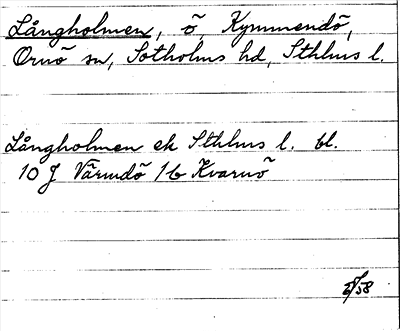 Långholmen, ö, Kymmendö,
Ornö sn, Sotholms hd, Sthlms l.
Långholmen ek Sthlms l. bl.
10 J Värmdö 1b Kvarnö